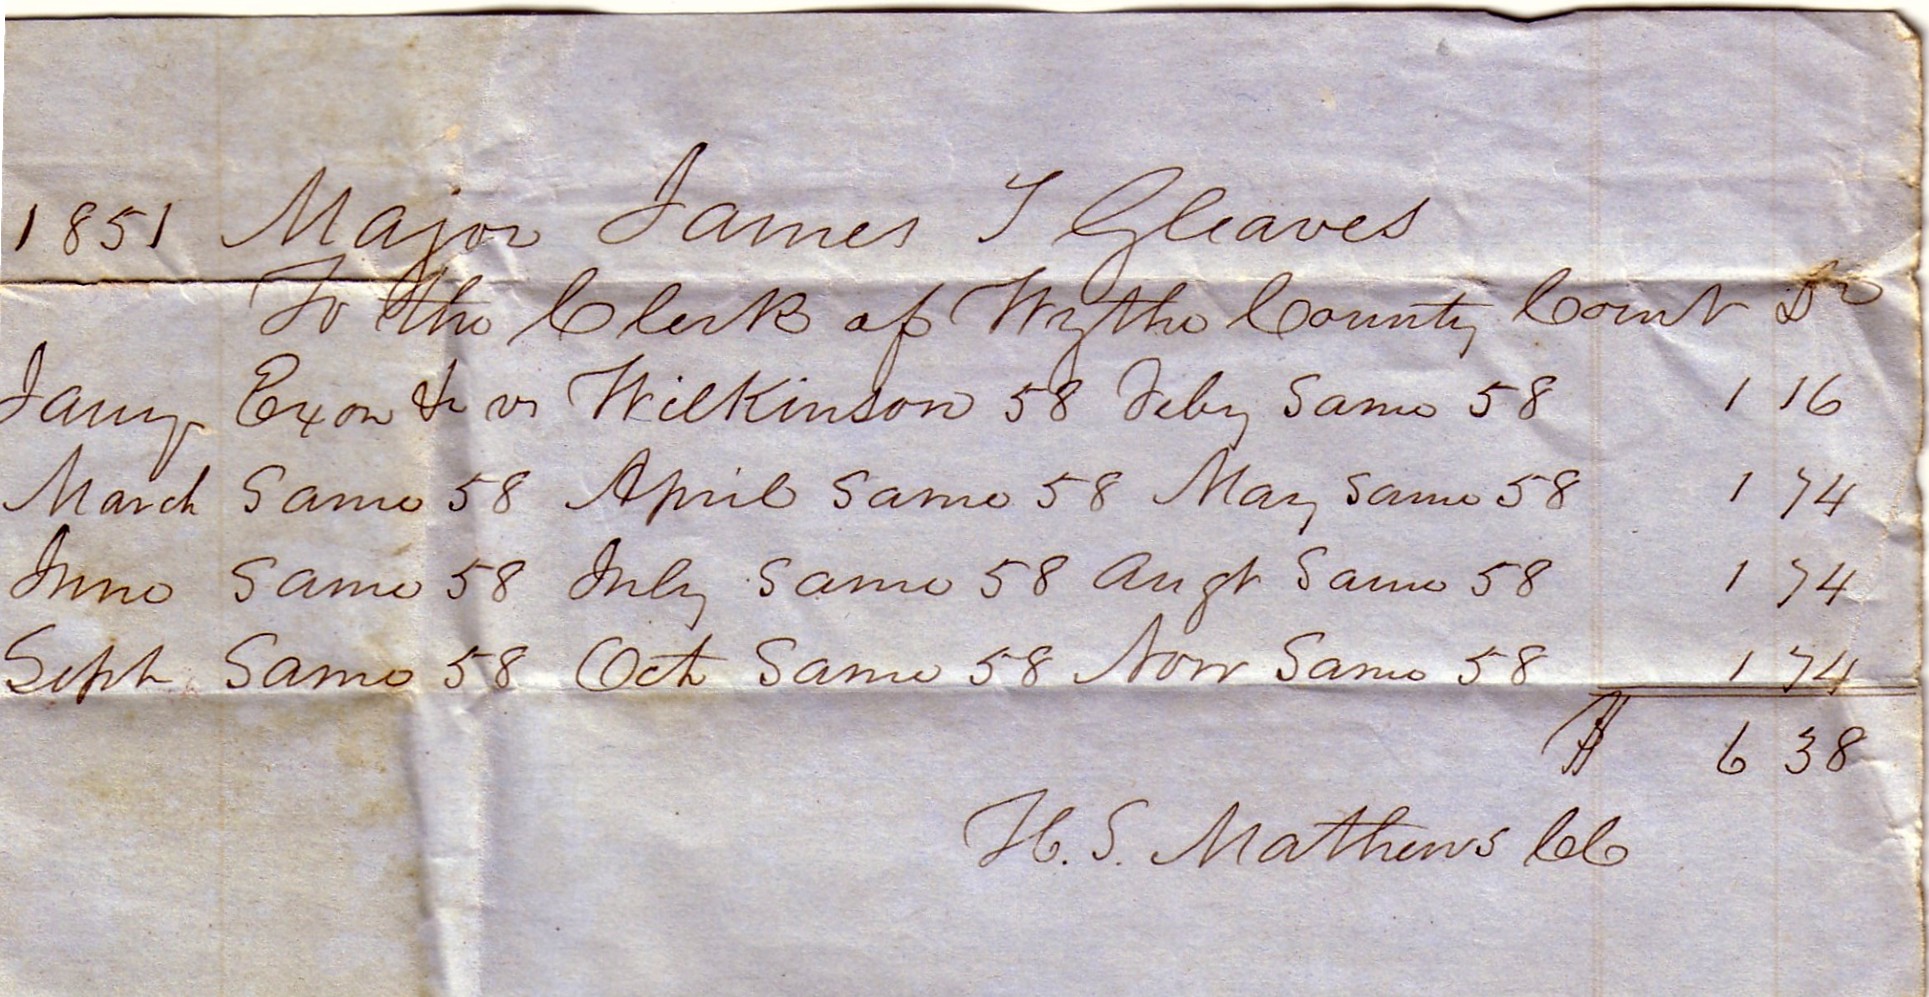 1851 Major James T Gleaves
To the Clerk of Wythe County Court Dr
Jany Exor &c vs Wilkinson 58 Feby Same 58 1 16
March Same 58 April Same 58 May Same 58 1 74
June Same 58 July Same 58 Augt Same 58 1 74
Sept Same 58 Oct Same 58 Nov Same 58 1 74
$ 6 38
H. S. Mathews CC